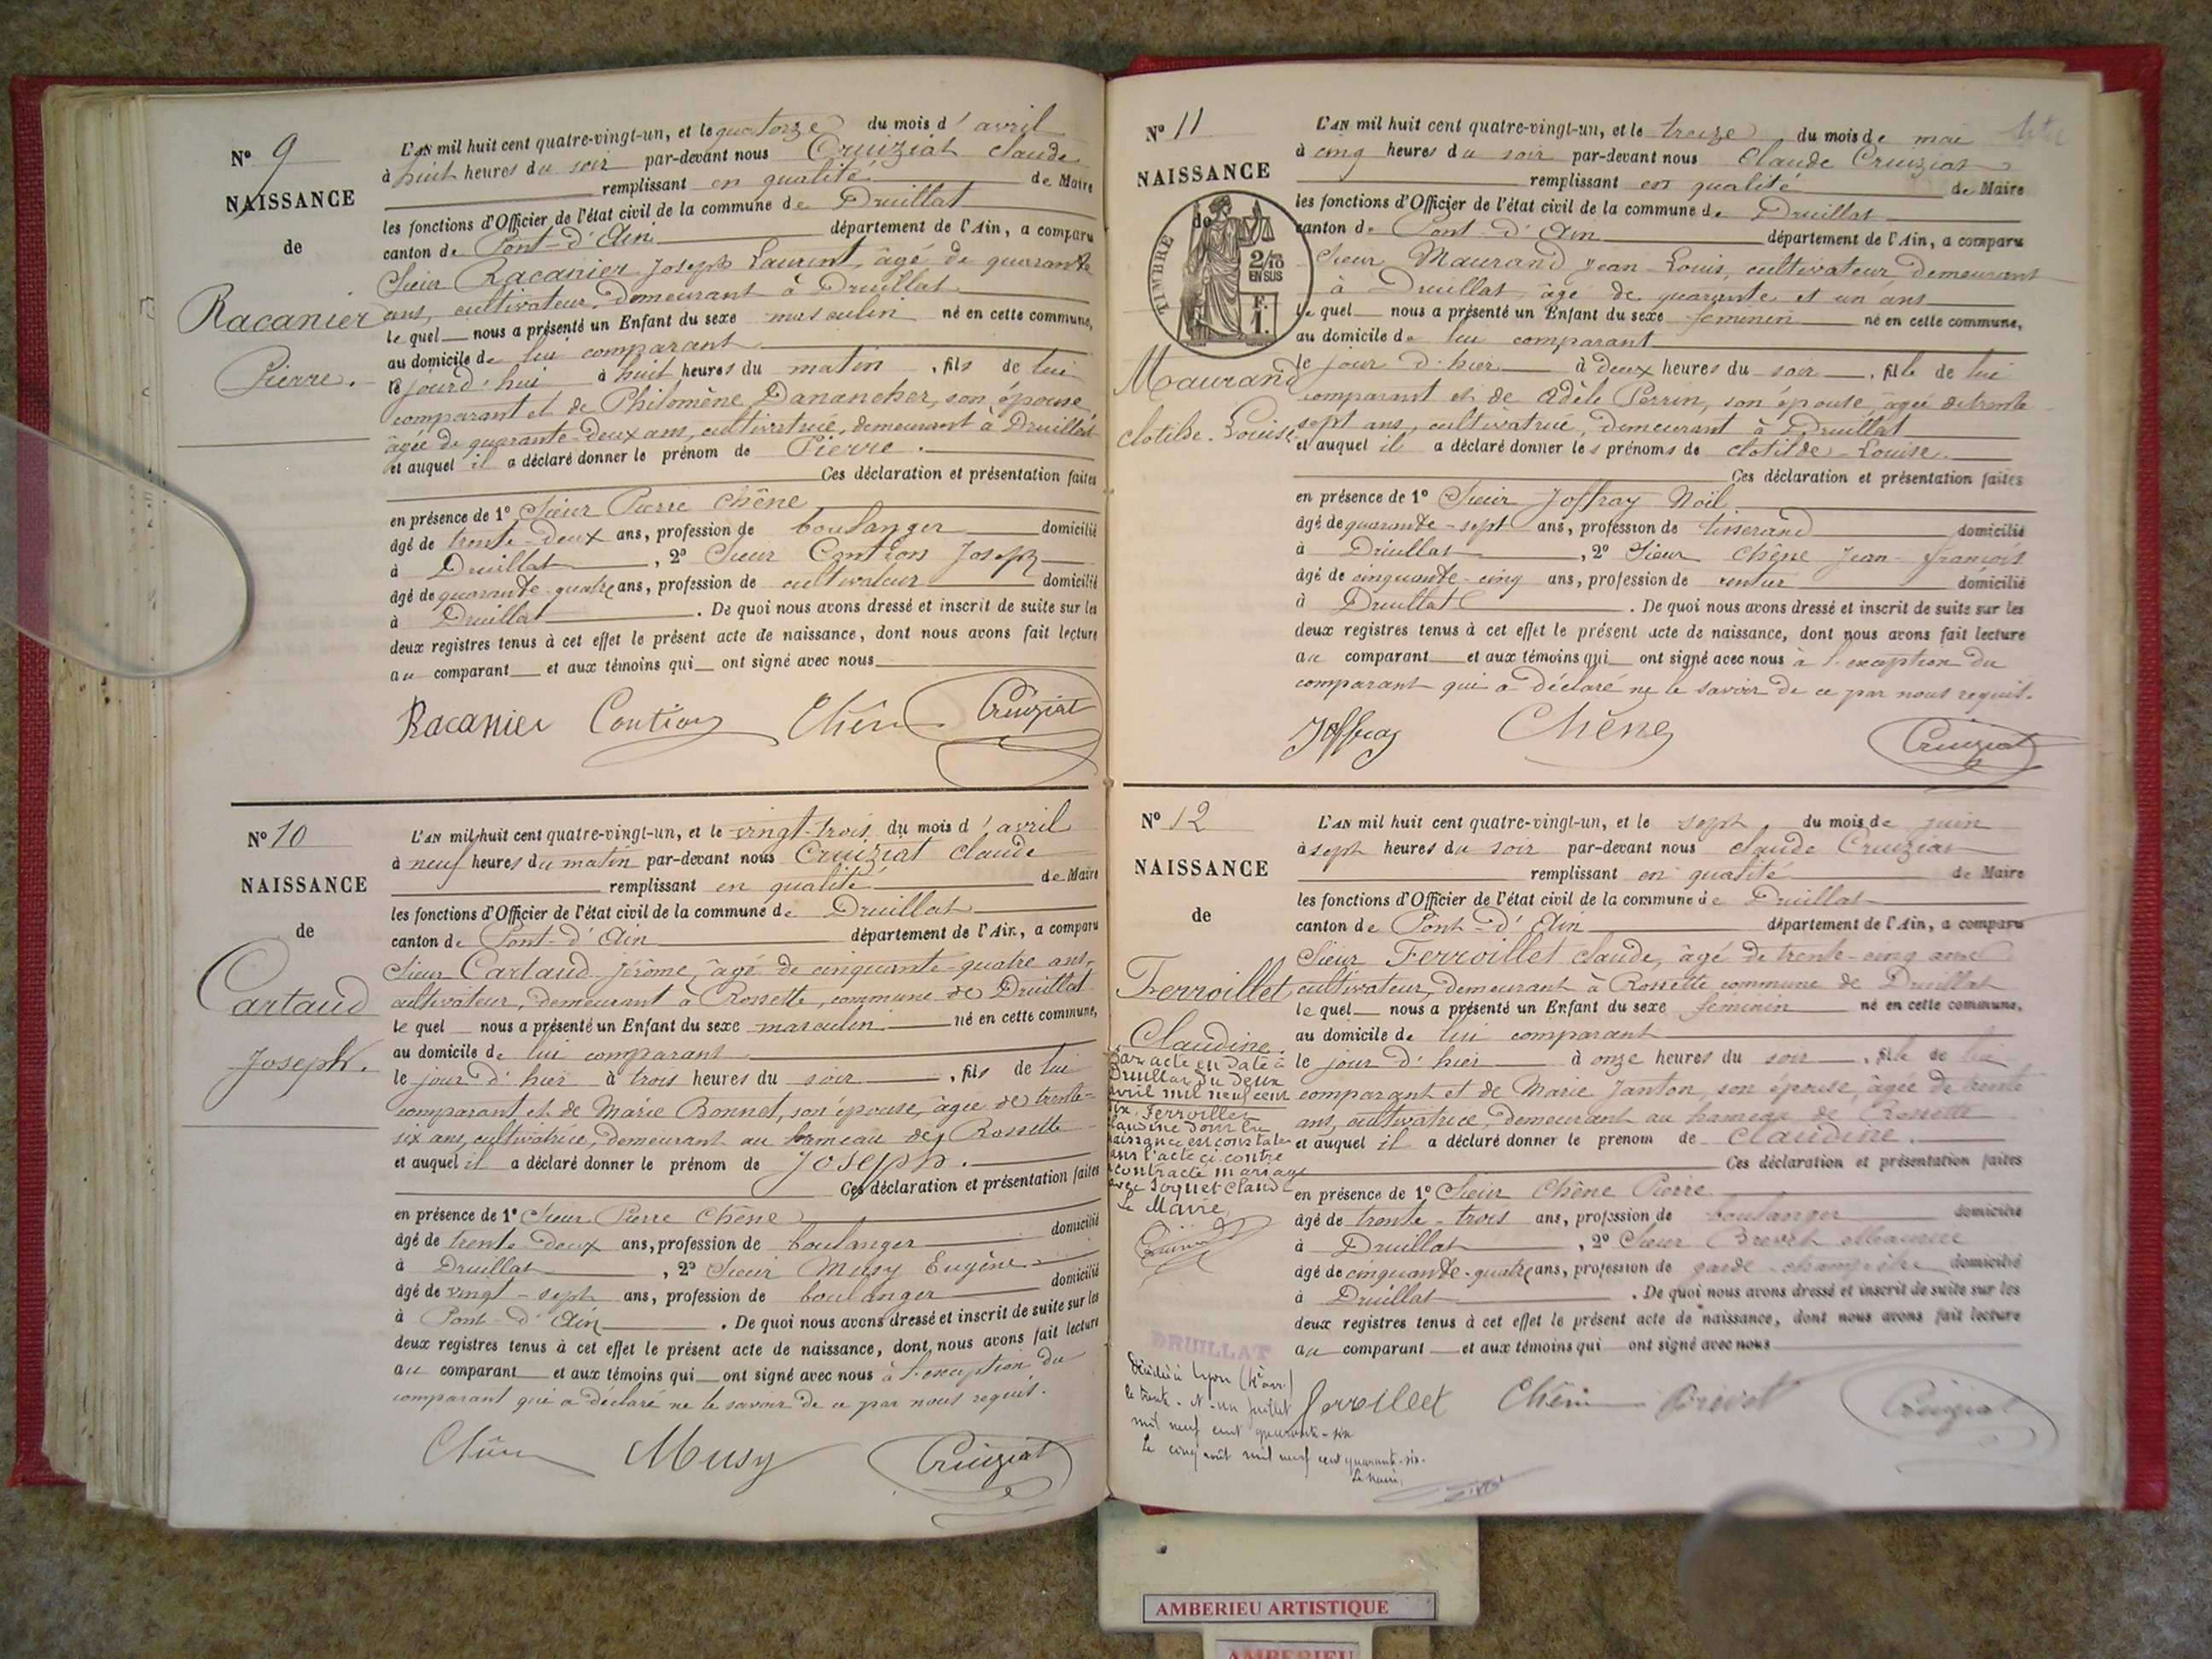 N° 9
NAISSANCE
de
Racanier
Pierre.
L'AN mil huit cent quatre-vingt-un, et le quatorze du mois d'avril
à huit heures du soir par-devant nous Cruiziat Claude
remplissant en qualité de Maire
les fonctions d'Officier de l'état civil de la commune de Druillat
canton de Pont-d'Ain département de l'Ain, a comparu
Sieur Racanier Joseph Laurent, âgé de quarante
ans, cultivateur, demeurant à Druillat
lequel nous a présenté un Enfant du sexe masculin né en cette commune,
au domicile de lui comparant
le jourd'hui à huit heures du matin, fils de lui
comparant et de Philomène Danancher, son épouse,
âgée de quarante-deux ans, cultivatrice, demeurant à Druillat
et auquel il a déclaré donner le prénom de Pierre.
Ces déclaration et présentation faites
en présence de 1° Sieur Pierre Chêne
âgé de trente-deux ans, profession de boulanger domicilié
à Druillat, 2° Sieur Contion Joseph
âgé de quarante-quatre ans, profession de cultivateur domicilié
à Druillat. De quoi nous avons dressé et inscrit de suite sur les
deux registres tenus à cet effet le présent acte de naissance, dont nous avons fait lecture
au comparant et aux témoins qui ont signé avec nous
Racanier Contion Chêne Cruiziat
N° 10
NAISSANCE
de
Cartaud
Joseph.
L'AN mil huit cent quatre-vingt-un, et le vingt-trois du mois d'avril
à neuf heures du matin par-devant nous Cruiziat Claude
remplissant en qualité de Maire
les fonctions d'Officier de l'état civil de la commune de Druillat
canton de Pont-d'Ain département de l'Ain, a comparu
Sieur Cartaud Jérôme, âgé de cinquante-quatre ans,
cultivateur, demeurant à Rossette, commune de Druillat
lequel nous a présenté un Enfant du sexe masculin né en cette commune,
au domicile de lui comparant
le jour d'hier à trois heures du soir, fils de lui
comparant et de Marie Bonnet, son épouse, âgée de trente-
six ans, cultivatrice, demeurant au hameau de Rossette
et auquel il a déclaré donner le prénom de Joseph.
Ces déclaration et présentation faites
en présence de 1° Sieur Pierre Chêne
âgé de trente-deux ans, profession de boulanger domicilié
à Druillat, 2° Sieur Musy Eugène
âgé de vingt-sept ans, profession de boulanger domicilié
à Pont-d'Ain. De quoi nous avons dressé et inscrit de suite sur les
deux registres tenus à cet effet le présent acte de naissance, dont nous avons fait lecture
au comparant et aux témoins qui ont signé avec nous à l'exception du
comparant qui a déclaré ne le savoir de ce par nous requis.
Chêne Musy Cruiziat
N° 11
NAISSANCE
de
TIMBRE
2/10
EN SUS
F.
1.
Maurand
Clotilde-Louise
L'AN mil huit cent quatre-vingt-un, et le treize du mois de mai
à cinq heures du soir par-devant nous Claude Cruiziat
remplissant en qualité de Maire
les fonctions d'Officier de l'état civil de la commune de Druillat
canton de Pont-d'Ain département de l'Ain, a comparu
Sieur Maurand Jean-Louis, cultivateur, demeurant
à Druillat, âgé de quarante et un ans
lequel nous a présenté un Enfant du sexe féminin né en cette commune,
au domicile de lui comparant
le jour d'hier à deux heures du soir, fille de lui
comparant et de Adèle Perrin, son épouse, âgée de trente
sept ans, cultivatrice, demeurant à Druillat
et auquel il a déclaré donner les prénoms de Clotilde-Louise.
Ces déclaration et présentation faites
en présence de 1° Sieur Joffray Noël
âgé de quarante-sept ans, profession de tisserand domicilié
à Druillat, 2° Sieur Chêne Jean-François
âgé de cinquante-cinq ans, profession de rentier domicilié
à Druillat. De quoi nous avons dressé et inscrit de suite sur les
deux registres tenus à cet effet le présent acte de naissance, dont nous avons fait lecture
au comparant et aux témoins qui ont signé avec nous à l'exception du
comparant qui a déclaré ne le savoir de ce par nous requis.
Joffray Chêne Cruiziat
N° 12
NAISSANCE
de
Ferroillet
Claudine.
Par acte en date à
Druillat du deux
avril mil neuf cent
six, Ferroillet
Claudine dont la
naissance est constatée
dans l'acte ci contre
a contracté mariage
avec Claude
Le Maire,
Cruiziat
DRUILLAT
Décédée à Lyon
le trente-et-un juillet
mil neuf cent quarante-six
Le cinq août mil neuf cent quarante-six.
Le Maire,
L'AN mil huit cent quatre-vingt-un, et le sept du mois de juin
à sept heures du soir par-devant nous Claude Cruiziat
remplissant en qualité de Maire
les fonctions d'Officier de l'état civil de la commune de Druillat
canton de Pont-d'Ain département de l'Ain, a comparu
Sieur Ferroillet Claude, âgé de trente-cinq ans
cultivateur, demeurant à Rossette commune de Druillat
lequel nous a présenté un Enfant du sexe féminin né en cette commune,
au domicile de lui comparant
le jour d'hier à onze heures du soir, fille de lui
comparant et de Marie Janton, son épouse, âgée de trente
ans, cultivatrice, demeurant au hameau de Rossette
et auquel il a déclaré donner le prénom de Claudine.
Ces déclaration et présentation faites
en présence de 1° Sieur Chêne Pierre
âgé de trente-trois ans, profession de boulanger domicilié
à Druillat, 2° Sieur
âgé de cinquante-quatre ans, profession de garde-champêtre domicilié
à Druillat. De quoi nous avons dressé et inscrit de suite sur les
deux registres tenus à cet effet le présent acte de naissance, dont nous avons fait lecture
au comparant et aux témoins qui ont signé avec nous
Ferroillet Chêne Cruiziat
AMBERIEU ARTISTIQUE
AMBERIEU